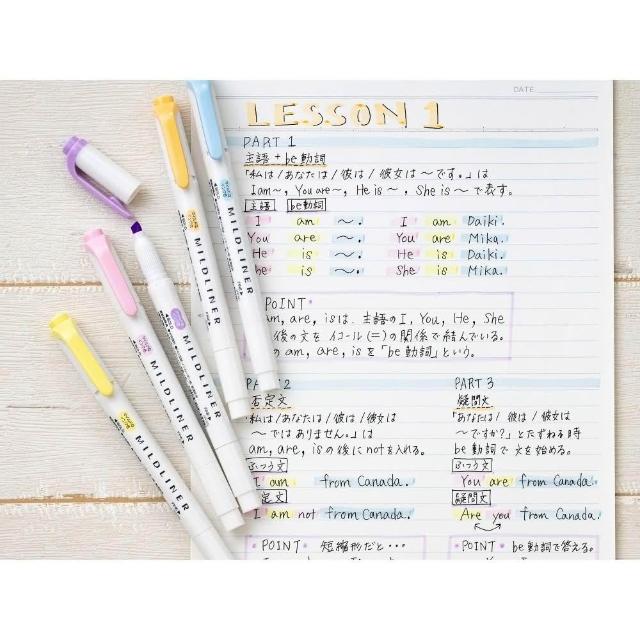 DATE
LESSON 1
PART 1
主語 + be動詞
「私は/あなたは/彼は/彼女は〜です。」は
I am〜, You are〜, He is〜, She is〜で表す。
主語 be動詞
I am 〜. I am Daiki.
You are 〜. You are Mika.
He is 〜. He is Daiki.
he is 〜. She is Mika.
POINT
am, are, isは、主語のI, You, He, She
後の文をイコール(=)の関係で結んでいる。
の am, are, isを「be動詞」という。
2
否定文
私は/あなたは/彼は/彼女は
〜ではありません。」は
am, are, isの後にnotを入れる。
ふつう文
I am from Canada.
定文
I am not from Canada.
POINT 短縮形だと・・・
PART 3
疑問文
「あなたは/彼は/彼女は
〜ですか?」とたずねる時
be動詞で文を始める。
ふつう文
You are from Canada.
疑問文
Are you from Canada.
POINT be動詞で答える。
MILDLINER
MILDLINER
MILDLINER
MILDLINER
MILDLINER